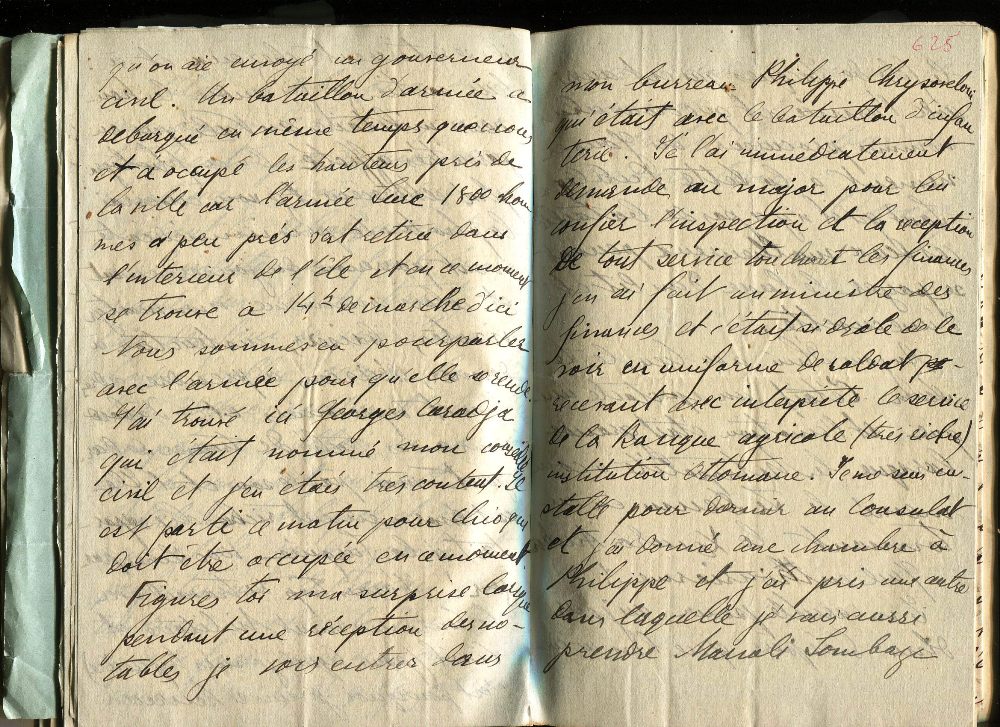 qu'on aie envoyé un gouverneur
civil. Un bataillon d'armée a
debarqué en même temps que nous
et a occupé les hauteurs près de
la ville car l'armée turc 1800 hom
mes à peu près s'at retiré dans
l'interieur de l'île et en ce moment
se trouve a 14h de marche d'ici
Nous sommes en pourparler
avec l'armée pour qu'elle se rende.
J'ai trouvé ici Georges Caradja
qui était nommé mon conseiller
civil et j'en étais très content. Il
est parti ce matin pour Chio qui
doit être occupée en ce moment
Figures toi ma surprise lorsque
pendant une réception des no-
tables je vois entrer dans
625
mon bureau Philippe Chrysoveloni
qui était avec le bataillon d'infan
terie. Je l'ai immediatement
demandé au major pour lui
confier l'inspection et la réception
de tout service touchant les finances
j'en ai fait un ministre des
finances et c'était si drôle de le
voir en uniforme de soldat
recevant avec interprète le service
de la Banque agricole (très riche)
institution Ottomane. Je me suis in-
stallé pour dormir au Consulat
et j'ai donné une chambre à
Philippe et j'ai pris une autre
dans laquelle je vais aussi
prendre Manoli